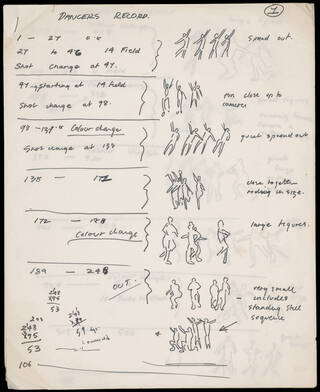 DANCERS RECORD.
1
1 — 27
27 to 46 14 Field
Shot Change at 97.
Spread out.
97 starting at 14 Field
Shot change at 98.
run close up to
camera
98 - 138 Colour change
Shot change at 138
quiet spread out
138 — 172
close together
reducing in size.
172 — 188
Colour change
large figures.
189 — 248
OUT.
very small
includes
standing still
sequence
248
195
53
200
248
195
53
106